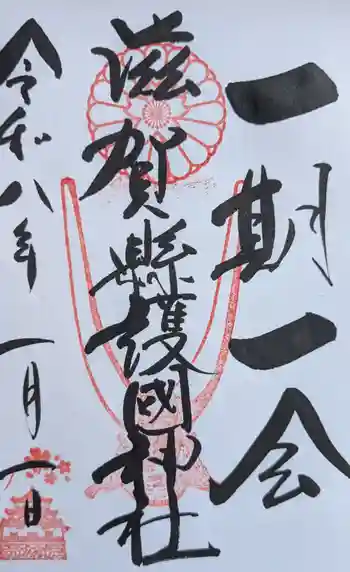 一期一会
滋賀縣護國神社
令和八年一月一日